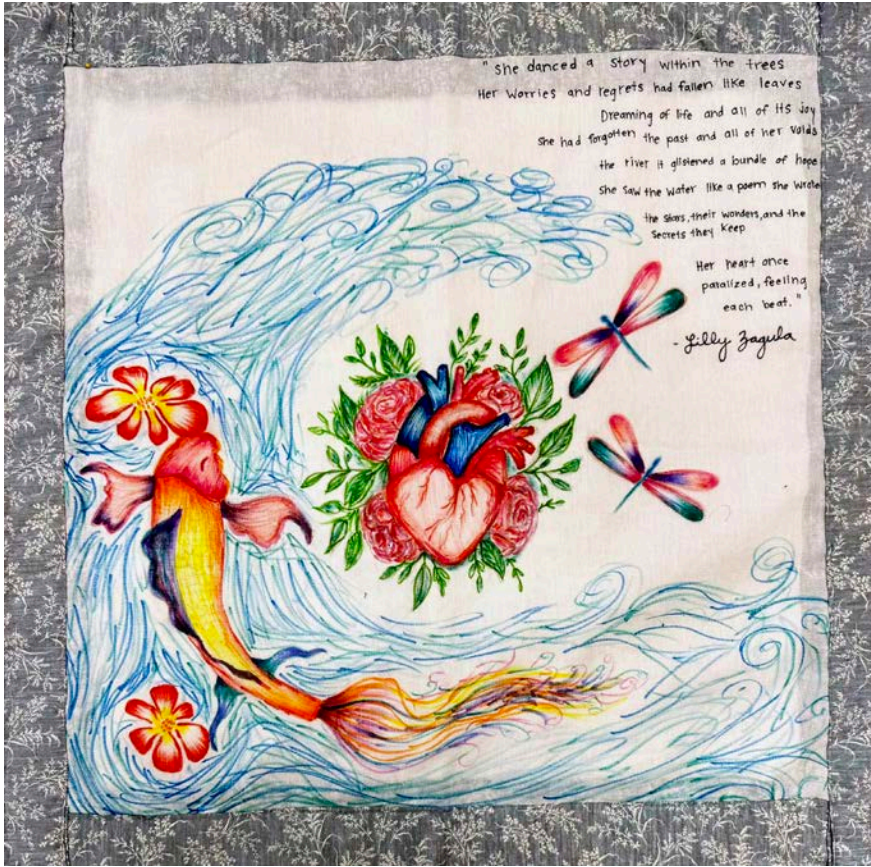 "She danced a story within the trees
Her worries and regrets had fallen like leaves
Dreaming of life and all of its joy
She had forgotten the past and all of her voids
the river it glistened a bundle of hope
she saw the water like a poem she wrote
the stars, their wonders, and the
secrets they keep
Her heart once
paralized, feeling
each beat."
- Lilly Zagula